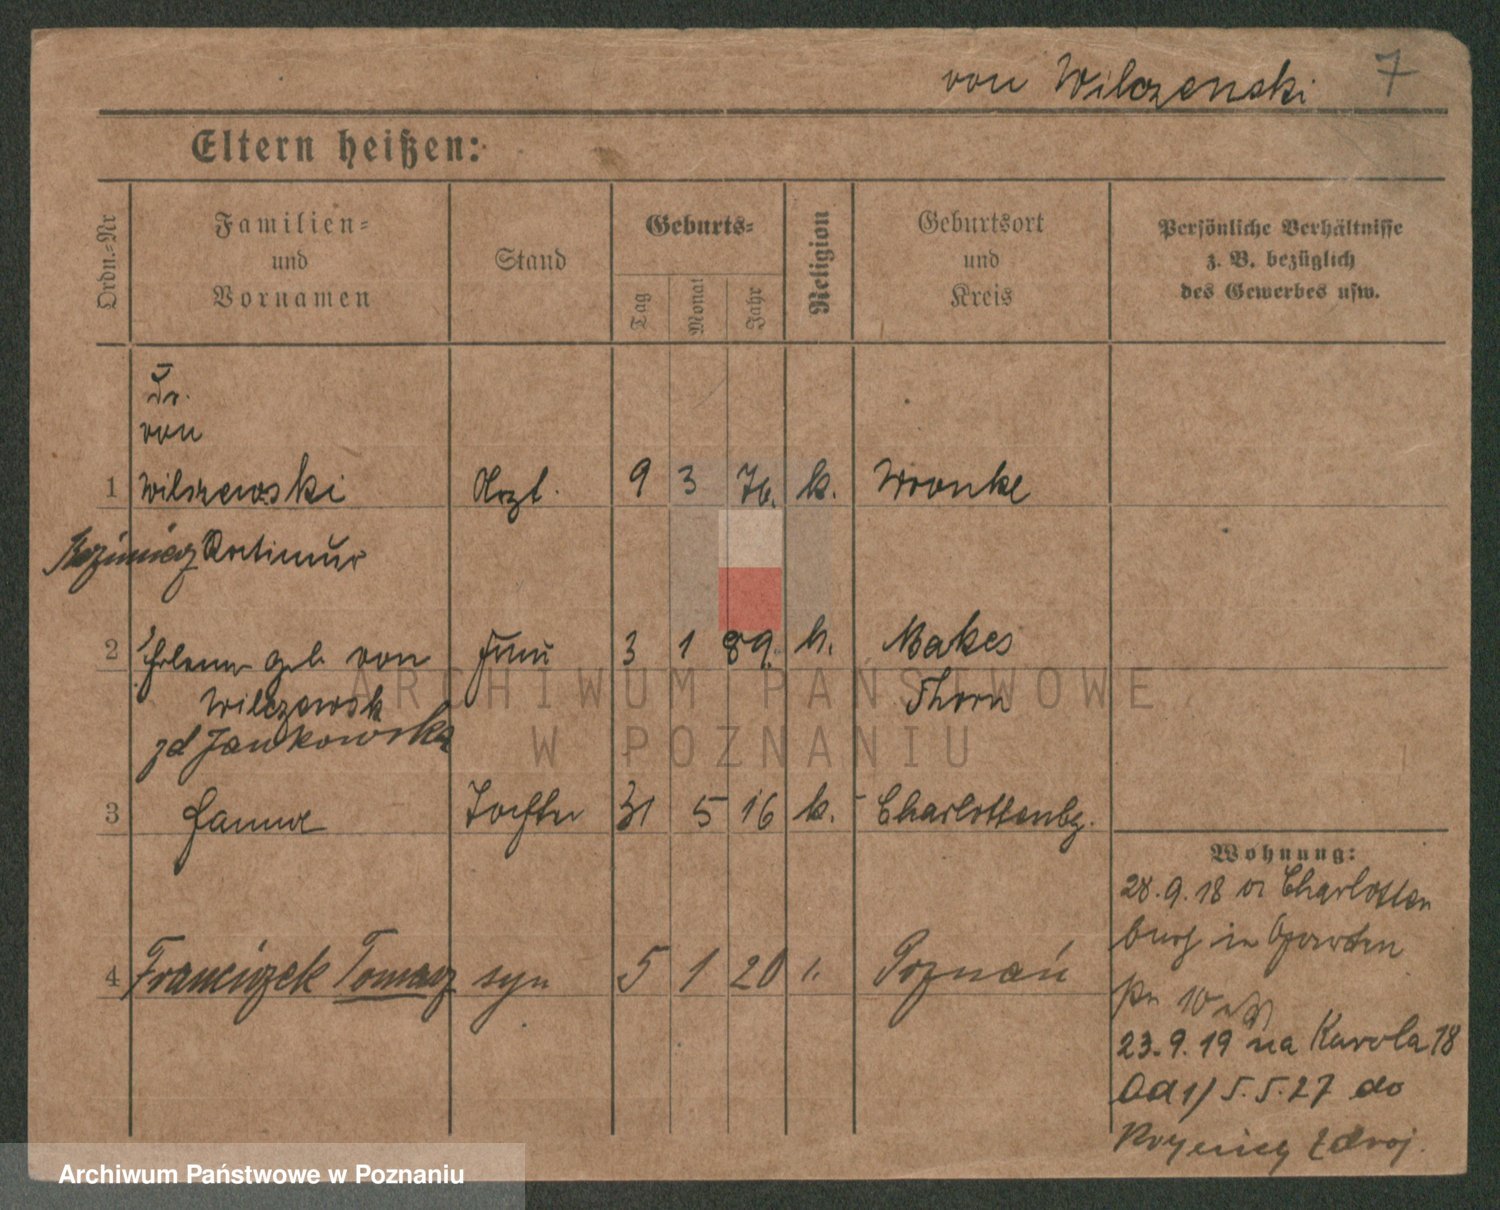 von Wilczenski 7
Eltern heißen:
Ordn.=Nr
Familien=
und
Vornamen
Stand
Geburts=
Tag
Monat
Jahr
Religion
Geburtsort
und
Kreis
Persönliche Verhältnisse
z. B. bezüglich
des Gewerbes usw.
Dr.
von
1 Wilczewski Arzt. 9 3 76. k. Wronke
Kazimierz
2 geb. von Frau 3 1 89. k. Makes
Wilczewsk Thorn
zd Jankowska
3 Hanna Tochter 31 5 16 k. Charlottenbg.
Wohnung:
28.9.18 v Charlotten
burg in
4 Franciszek Tomasz syn 5 1 20 Poznań
10
23.9.19 na Karola 18
Od 1/5.5.27 do
Krynicy Zdroj.
ARCHIWUM PAŃSTWOWE
W POZNANIU
Archiwum Państwowe w Poznaniu